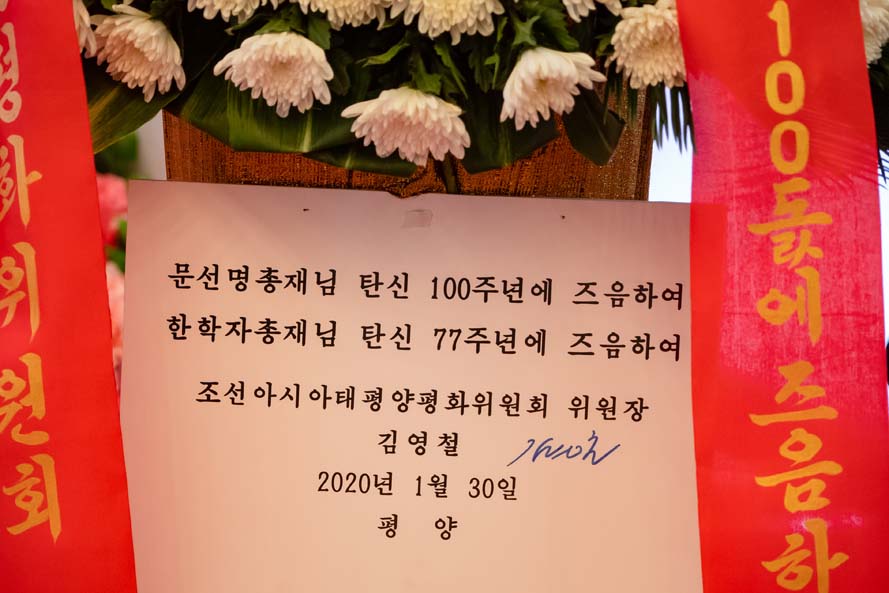 평화위원회
문선명총재님 탄신 100주년에 즈음하여
한학자총재님 탄신 77주년에 즈음하여
조선아시아태평양평화위원회 위원장
김영철
2020년 1월 30일
평 양
100돐에 즈음하